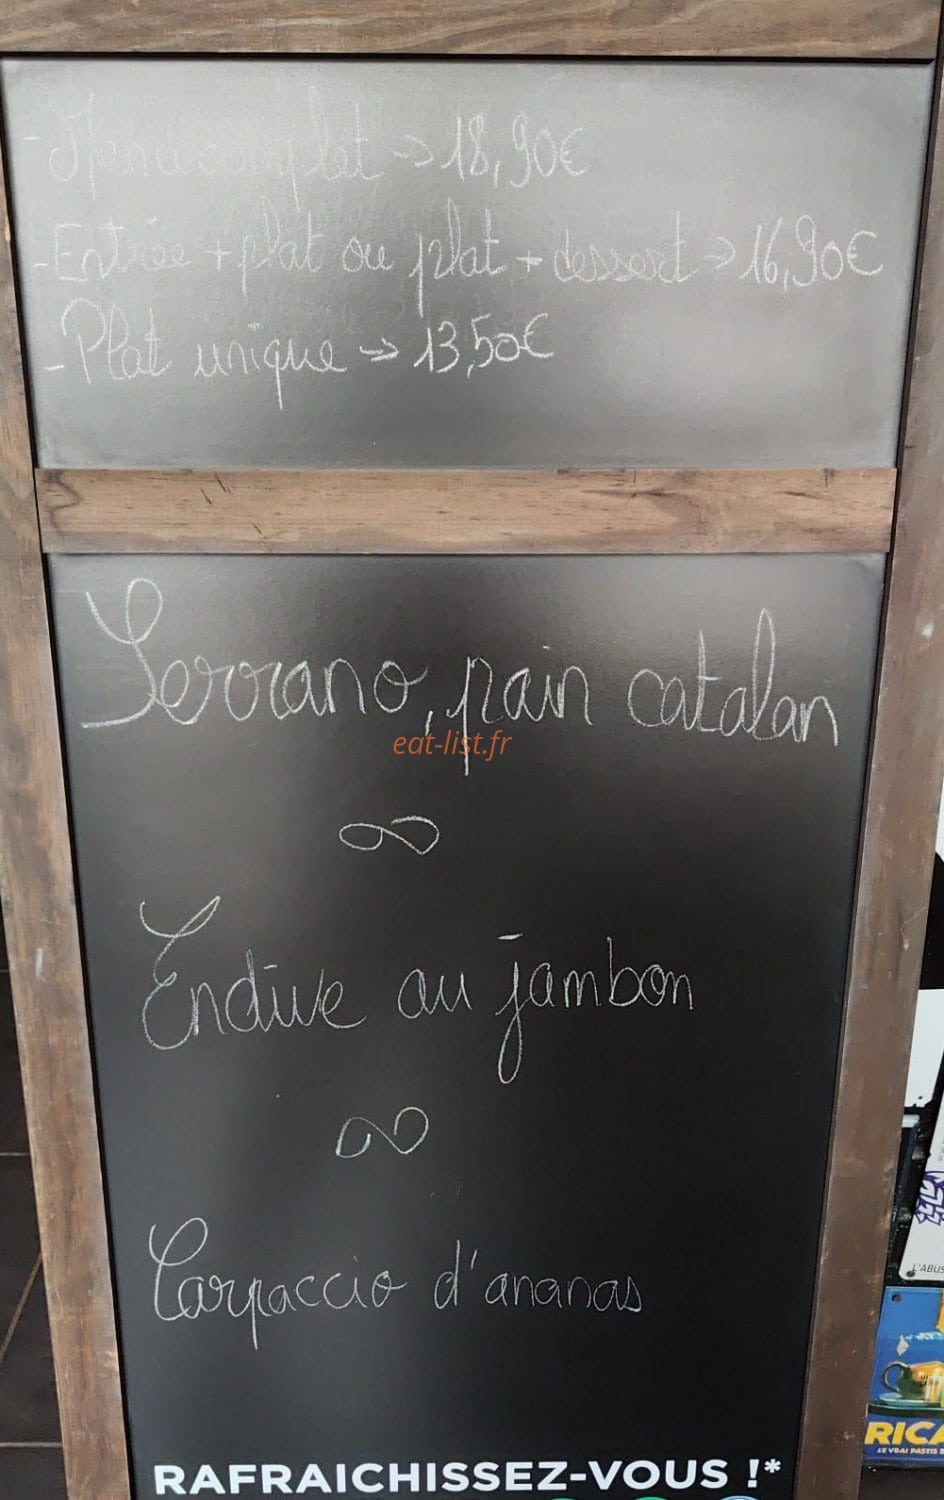 - Menu complet → 18,90€
- Entrée + plat ou plat + dessert → 16,90€
- Plat unique → 13,50€
Serrano, pain catalan
eat-list.fr
Endive au jambon
Carpaccio d'ananas
L'ABUS
RICA
LE VRAI PASTIS
RAFRAICHISSEZ-VOUS !*